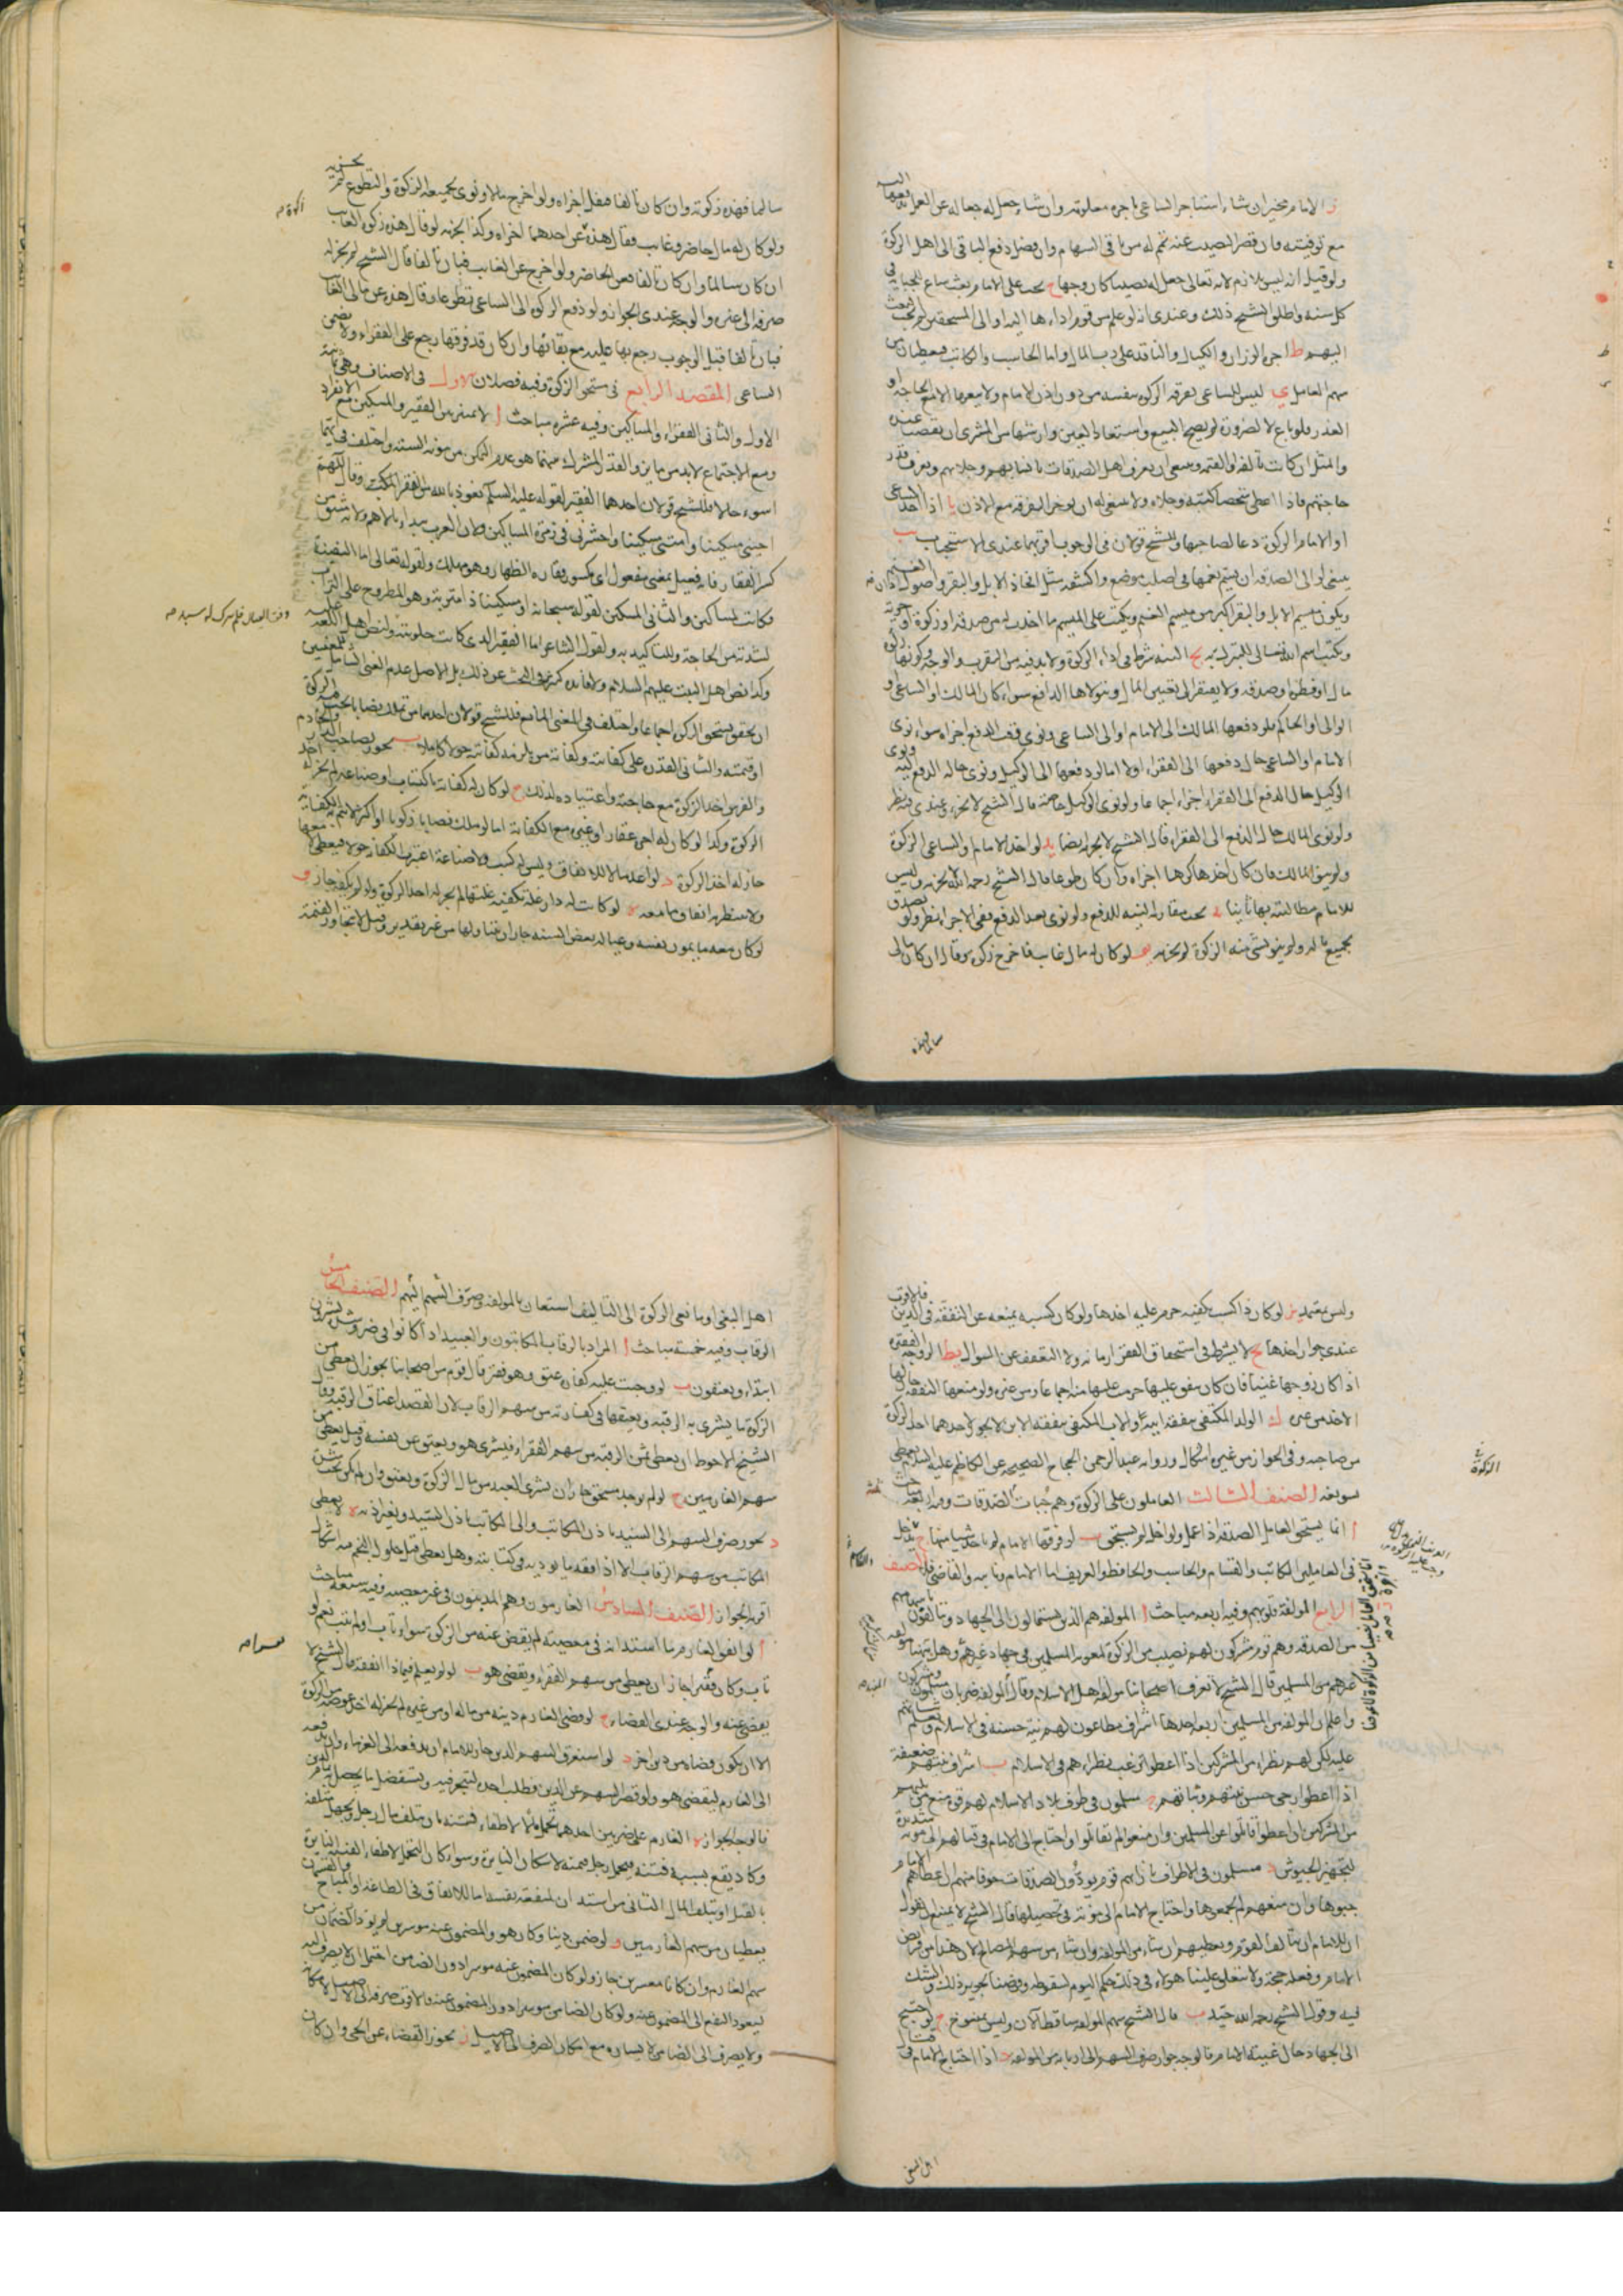 ز الامام مخير ان شاء استاجر الساعي باجرة معلومة وان شاء جعل له جعالة عن العمل
مع توفيته فان قصر النصيب عنه تمم له من باقي السهام وان فضل دفع الباقي الى اهل الزكوة
ولو قيل ان ليس بلازم لانه تعالى جعل له نصيبا كان وجها ح يجب على الامام بعث ساع لجباية
كل سنة واطلق الشيخ ذلك وعندي انه لو علم من قوم اداءها اليه او الى المستحقين لم يجب البعث
اليهم ط اجرة الوزان والكيال والناقد على رب المال واما الحاسب والكاتب فيعطيان من
سهم العامل ي ليس للساعي تفرقة الزكوة بنفسه من دون اذن الامام ولا بيعها الا مع الحاجة او
العذر فلو باع لا لضرورة لم يصح البيع واستعاد العين وارشها من المشتري ان نقصت عنده
والمثل ان كانت تالفة او القيمة وينبغي ان يعرف اهل الصدقات بانسابهم وحلاهم ويعرف قدر
حاجتهم فاذا اعطى شخصا كتبه وحلاه ولا ينبغي له ان يؤخر التفرقة مع الاذن يا اذا اخذ الساعي
او الامام الزكوة دعا لصاحبها وللشيخ قولان في الوجوب اقربهما عندي الاستحباب يب
ينبغي لوالي الصدقة ان يسم نعمها في اصلب موضع واكشفه مثل افخاذ الابل والبقر واصول اذان الغنم
ويكون ميسم الابل والبقر اكبر من ميسم الغنم ويكتب على الميسم ما اخذت له من صدقة او زكوة او جزية
ويكتب اسم الله تعالى للتبرك يج النية شرط في اداء الزكوة ولا بد فيه من التقرب والوجه وكونها زكوة
مال او فطرة وصدقة ولا يفتقر الى تعيين المال ويتولاها الدافع سواء كان المالك او الساعي او
الوالي او الحاكم فلو دفعها المالك الى الامام او الى الساعي ونوى وقت الدفع اجزاه سواء نوى
الامام او الساعي حال دفعها الى الفقراء او لا اما لو دفعها الى الوكيل ونوى حالة الدفع اليه ونوى
الوكيل حال الدفع الى الفقراء اجزاه اجماعا ولو نوى الوكيل خاصة قال الشيخ لا يجزي وعندي فيه نظر
ولو نوى المالك حال الدفع الى الفقراء قال الشيخ لا يجزيه ايضا يد لو اخذ الامام والساعي الزكوة
ولم ينو المالك فان كان اخذها كرها اجزاه وان كان طوعا قال الشيخ رحمه الله لا يجزيه وليس
للامام مطالبته بها ثانيا يه يجب مقارنة النية للدفع ولو نوى بعد الدفع ففي الاجزاء نظر ولو تصدق
بجميع ماله ولم ينو بشئ منه الزكوة لم يجزه يو لو كان له مال غايب فاخرج زكوته وقال ان كان مالي
سالما فهذه
سالما فهذه زكوته وان كان تالفا فنفل اجزاه ولو اخرج مالا ونوى بجميعه الزكوة والتطوع لم يجزه
ولو كان له مال حاضر وغايب فقال هذه عن احدهما اجزاه وكذا يجزيه لو قال هذه زكوة الغايب
ان كان سالما وان كان تالفا فعن الحاضر ولو اخرج عن الغايب فبان تالفا قال الشيخ لم يجز له
صرفه الى غيره والوجه عندي الجواز ولو دفع الزكوة الى الساعي تطوعا وقال هذه عن مالي الغايب
فبان تالفا قبل الوجوب رجع بها عليه مع بقائها وان كان قد فرقها رجع على الفقراء ولا يضمن
الساعي المقصد الرابع في مستحق الزكوة وفيه فصلان الاول في الاصناف وهي ثمانية
الاول والثاني الفقراء والمساكين وفيه عشرة مباحث ا لا تمييز بين الفقير والمسكين مع الانفراد
ومع الاجتماع لا بد من مايز والقدر المشترك بينهما هو عدم التمكن من مؤنة السنة واختلف في ايهما
اسوء حالا فللشيخ قولان احدهما الفقير لقوله عليه السلم نعوذ بالله من الفقر المكب وقال اللهم
احيني مسكينا وامتني مسكينا واحشرني في زمرة المساكين ولان العرب يبداء بالاهم ولانه مشتق من
كسر الفقار فانه فعيل بمعنى مفعول اي مكسور فقاره الظهار وهو مهلك ولقوله تعالى اما السفينة
فكانت لمساكين والثاني المسكين لقوله سبحانه او مسكينا ذا متربة وهو المطروح على التراب
لشدته من الحاجة وللتاكيد به ولقول الشاعر اما الفقير الذي كانت حلوبته ولنص اهل اللغة عليه
وكذا نص اهل البيت عليهم السلام ولا فايدة كثيرة في البحث عن ذلك بل الاصل عدم الغنى الشامل للمعنيين
ان تحقق يستحق الزكوة اجماعا واختلف في المعنى المانع فللشيخ قولان احدهما من تملك نصابا يجب فيه الزكوة
او قيمته والثاني القدرة على كفايته وكفاية من يلزمه كفايته حولا كاملا ب يجوز لصاحب الدار والخادم
والفرس اخذ الزكوة مع حاجته واعتياده لذلك ج لو كان له كفاية باكتساب او صناعة لم يجز له اخذ
الزكوة وكذا لو كان له اجرة عقار او غيره مع الكفاية اما لو ملك نصابا زكويا او اكثر لا تتم به الكفاية
جاز له اخذ الزكوة د لو اعد مالا للانفاق وليس له كسب ولا صناعة اعتبرت الكفاية حولا فيعطى معها
ولا ينتظر به انفاق ما معه ه لو كانت له دار غلة تكفيه غلتها لم يجز له اخذ الزكوة ولو لم يكفه جاز و
لو كان معه ما يمون نفسه وعياله بعض السنة جاز ان يتناولها من غير تقدير وقيل لا يتجاوز التتمة
وليس بمعتمد ز لو كان ذا كسب يكفيه حرم عليه اخذها ولو كان كسبه يمنعه عن التفقه في الدين فالاقرب
عندي جواز اخذها ح لا يشترط في استحقاق الفقر الزمانة ولا التعفف عن السوال ط الزوجة الفقيرة
اذا كان زوجها غنيا فان كان ينفق عليها حرمت عليها منه اجماعا ومن غيره ولو منعها النفقة جاز لها
الاخذ من غيره ي الولد المكتفي بنفقة ابيه والاب المكتفي بنفقة الابن لا يجوز لاحدهما اخذ الزكوة
من صاحبه وفي الجواز من غيره اشكال وروايه عبد الرحمن الحجاج الصحيحة عن الكاظم عليه السلام يعطي
تسويغه الصنف الثالث العاملون على الزكوة وهم جباة الصدقات وفيه اربعة مباحث
ا انما يستحق العامل الصدقة اذا عمل ولو اخل لم يستحق ب لو فرقها الامام لم ياخذ شيئا منها ج يدخل
في العاملين الكاتب والقسام والحاسب والحافظ والعريف اما الامام ونائبه والقاضي فلا الصنف
الرابع المؤلفة قلوبهم وفيه اربعة مباحث ا المؤلفة هم الذين يستمالون الى الجهاد ويتالفون باسهامهم
من الصدقة وهم قوم مشركون لهم نصيب من الزكوة لمعونة المسلمين في جهاد غيرهم وهل يثبت مؤلفة
غيرهم من المسلمين قال الشيخ لا نعرف اصحابنا مؤلفة اهل الاسلام وقال المؤلفة ضربان مسلمون ومشركون
واعلم ان المؤلفة من المسلمين اربعة احدها اشراف مطاعون لهم نية حسنة في الاسلام
عليه لكن لهم نظراء من المشركين اذا اعطوا رغب نظراءهم في الاسلام ب اشراف نيتهم ضعيفة
اذا اعطوا رجي حسن نيتهم وثباتهم ج مسلمون في طرف بلاد الاسلام لهم قوة منع من يليهم
من المشركين ان اعطوا قاتلوا عن المسلمين وان منعوا لم يقاتلوا واحتاج الامام في قتالهم الى مؤنة
لتجهيز الجيوش د مسلمون في الاطراف بازائهم قوم يؤدون الصدقات خوفا منهم ان اعطاهم الامام
جبوها وان منعهم لم يجمعوها واحتاج الامام الى مؤنة في تحصيلها قال الشيخ لا يمتنع ان نقول
ان للامام ان يتالف القوم ويعطيهم ان شاء من المؤلفة وان شاء من سهم المصالح لان هذا من فرايض
الامام وفعله حجة ولا يتعلق علينا هؤلاء في ذلك حكم اليوم لسقوطه وفرضنا تجويز ذلك والشك
فيه وقول الشيخ رحمه الله جيد ب قال الشيخ سهم المؤلفة ساقط الان وليس بمنسوخ ج لو احتيج
الى الجهاد حال غيبة الامام فالوجه جواز صرف السهم الى اربابه من المؤلفة د اذا احتاج الامام في قتال
اهل البغي
اهل البغي او مانعي الزكوة الى التاليف استعان بالمؤلفة وصرف السهم اليهم الصنف الخامس
الرقاب وفيه خمسة مباحث ا المراد بالرقاب المكاتبون والعبيد اذا كانوا في ضر وشدة يشترون
ابتداء ويعتقون ب لو وجبت عليه كفارة عتق وهو فقير قال قوم من اصحابنا يجوز ان يعطى من
الزكوة ما يشتري به الرقبة ويعتقها في كفارته من سهم الرقاب لان القصد اعتاق الرقبة وقال
الشيخ الاحوط ان يعطى ثمن الرقبة من سهم الفقراء فيشتري هو ويعتق عن نفسه وقيل يعطى من
سهم الغارمين ج لو لم يوجد مستحق جاز ان يشترى العبد من مال الزكوة ويعتق وان لم يكن تحت شدة
د يجوز صرف السهم الى السيد باذن المكاتب والى المكاتب باذن السيد وبغير اذنه ه لا يعطى
المكاتب من سهم الرقاب الا اذا فقد ما يؤديه في كتابته وهل يعطى قبل حلول النجم فيه اشكال
اقربه الجواز الصنف السادس الغارمون وهم المدينون في غير معصية وفيه سبعة مباحث
ا لو انفق الغارم ما استدانه في معصية لم يقض عنه من الزكوة سواء تاب او لم يتب نعم لو
تاب وكان فقيرا جاز ان يعطى من سهم الفقراء ويقضي هو ب لو لم يعلم فيماذا انفقه قال الشيخ لا
يقضى عنه والوجه عندي القضاء ج لو قضى الغارم دينه من ماله او من غيره لم يجز له اخذ عوضه من الزكوة
الا ان يكون قضاه من دين اخر د لو استغرق السهم الدين جاز للامام ان يدفعه الى الغرماء وان يدفعه
الى الغارم ليقضي هو ولو قصر السهم عن الدين وطلب اخذه ليتجر فيه ويستفضل ما يحصل به تمام الدين
فالوجه الجواز ه الغارم على ضربين احدهما تحمل مالا لاطفاء فتنة بان يتلف مال رجل ويجهل متلفه
وكاد يقع بسببه فتنة فيتحمل رجل قيمته لاسكان النائرة وسواء كان التحمل لاطفاء الفتنة الثايرة
بالقتل او بتلف المال الثاني من استدان لمنفعة نفسه اما للانفاق في الطاعة او المباح والقسمان
يعطيان من سهم الغارمين و لو ضمن دينا وكان هو والمضمون عنه موسرين لم يؤد الضمان من
سهم الغارم وان كانا معسرين جاز ولو كان المضمون عنه موسرا دون الضامن احتمل ان لا يصرف اليه
ليعود النفع الى المضمون عنه ولو كان الضامن موسرا دون المضمون عنه فالاقرب صرفه الى الاصيل لامكانه
ولا يصرف الى الضامن لا ليساره مع امكان الصرف الى الاصيل ز يجوز القضاء عن الحي وان كان